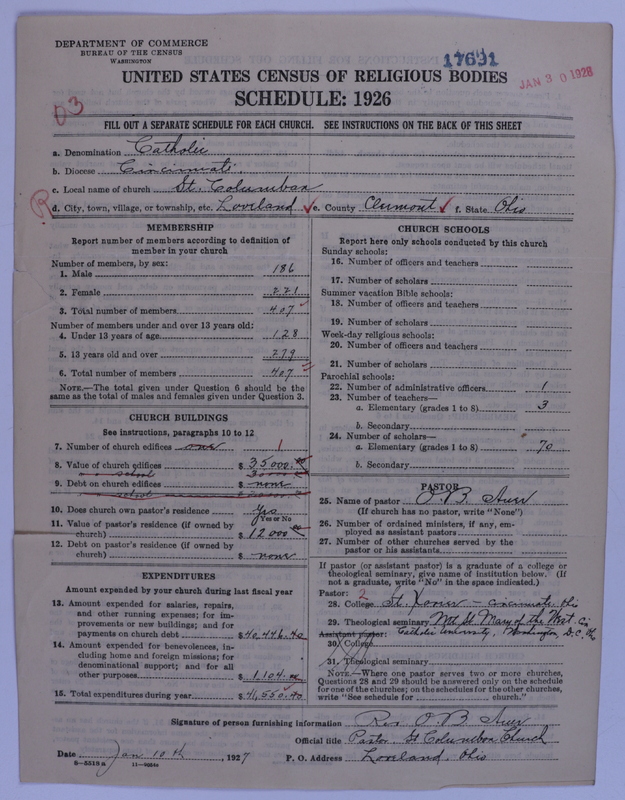 DEPARTMENT OF COMMERCE
BUREAU OF THE CENSUS
WASHINGTON
17691
JAN 30 1928
UNITED STATES CENSUS OF RELIGIOUS BODIES
SCHEDULE: 1926
FILL OUT A SEPARATE SCHEDULE FOR EACH CHURCH. SEE INSTRUCTIONS ON THE BACK OF THIS SHEET
a. Denomination Catholic
b. Diocese Cincinnati
c. Local name of church St. Columban
d. City, town, village, or township, etc. Loveland e. County Clermont f. State Ohio
MEMBERSHIP
Report number of members according to definition of
member in your church
Number of members, by sex:
1. Male 186
2. Female 221
3. Total number of members 407
Number of members under and over 13 years old:
4. Under 13 years of age 128
5. 13 years old and over 279
6. Total number of members 407
NOTE.—The total given under Question 6 should be
same as the total of males and females given under Question 3.
CHURCH BUILDINGS
See instructions, paragraphs 10 to 12
7. Number of church edifices one 1
8. Value of church edifices $ 35000.00
school
9. Debt on church edifices $ none
school
10. Does church own pastor's residence Yes
Yes or No
11. Value of pastor's residence (if owned by
church) $ 12000
12. Debt on pastor's residence (if owned by
church) $ none
EXPENDITURES
Amount expended by your church during last fiscal year
13. Amount expended for salaries, repairs,
and other running expenses; for im-
provements or new buildings; and for
payments on church debt $ 40,446.40
14. Amount expended for benevolences, in-
cluding home and foreign missions; for
denominational support; and for all
other purposes $ 1,104.00
15. Total expenditures during year $ 41,550.40
CHURCH SCHOOLS
Report here only schools conducted by this church
Sunday schools:
16. Number of officers and teachers
17. Number of scholars
Summer vacation Bible schools:
18. Number of officers and teachers
19. Number of scholars
Week-day religious schools:
20. Number of officers and teachers
21. Number of scholars
Parochial schools:
22. Number of administrative officers 1
23. Number of teachers—
a. Elementary (grades 1 to 8) 3
b. Secondary
24. Number of scholars—
a. Elementary (grades 1 to 8) 70
b. Secondary
PASTOR
25. Name of pastor O. B. Auer
(If church has no pastor, write "None")
26. Number of ordained ministers, if any, em-
ployed as assistant pastors
27. Number of other churches served by the
pastor or his assistants
If pastor (or assistant pastor) is a graduate of a college or
theological seminary, give name of institution below. (If
not a graduate, write "No" in the space indicated.)
Pastor: 2
28. College St. Xavier - Cincinnati, Ohio
29. Theological seminary Mt. St. Mary of the West. Cin
Assistant pastor: Catholic University, Washington, D.C.
30. College
31. Theological seminary
NOTE.—Where one pastor serves two or more churches,
Questions 28 and 29 should be answered only on the schedule
for one of the churches; on the schedules for the other churches,
write "See schedule for church."
Signature of person furnishing information Rev. O. B. Auer
Official title Pastor St Columban Church
Date Jan 10th, 1927 P. O. Address Loveland, Ohio